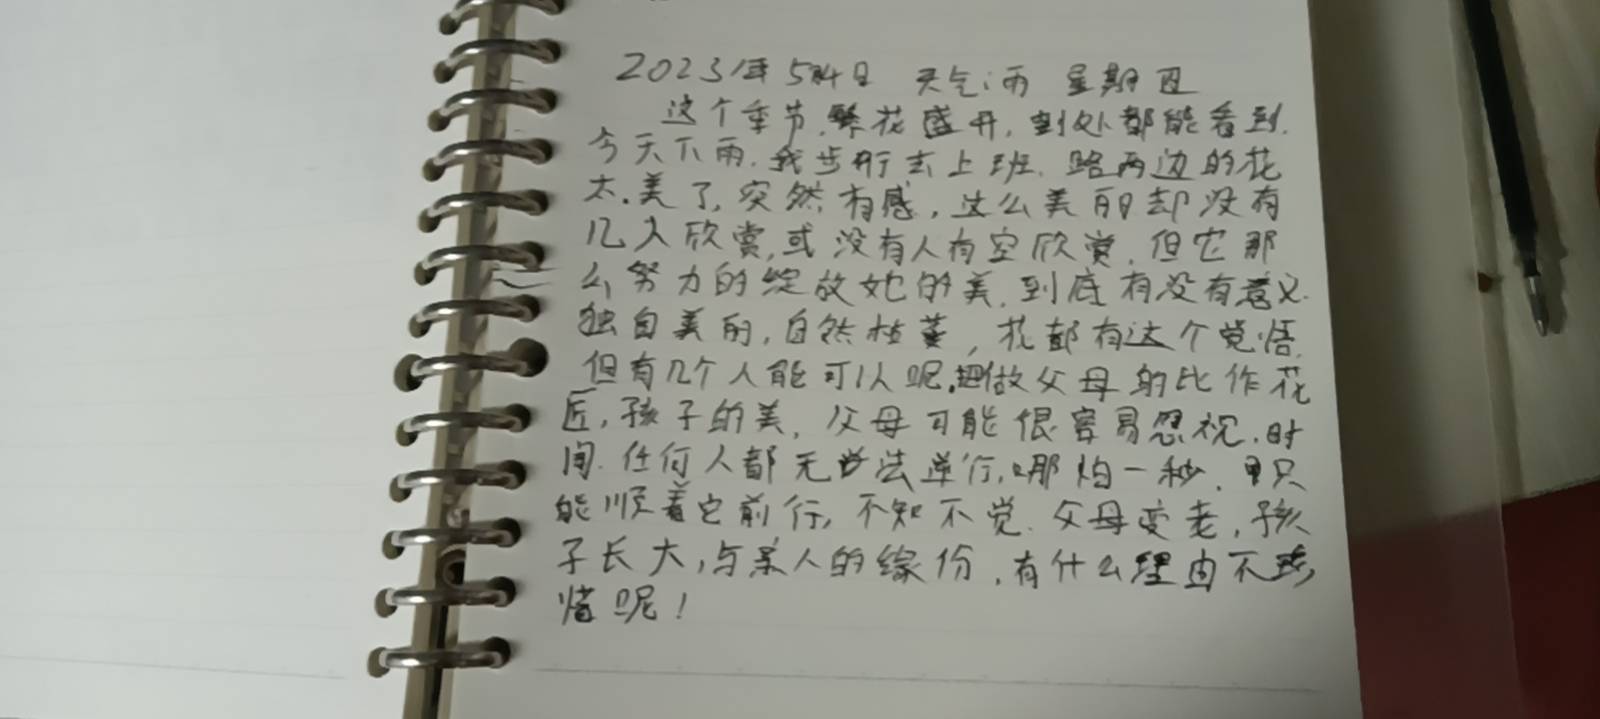 2023年5月4日 天气:雨 星期四
这个季节,繁花盛开,到处都能看到.
今天下雨.我步行去上班.路两边的花
太.美了,突然有感,这么美丽却没有
几人欣赏,或没有人有空欣赏,但它那
么努力的绽放她的美,到底有没有意义.
独自美丽,自然枯萎,花都有这个觉悟,
但有几个人能可以呢.把做父母的比作花
匠,孩子的美,父母可能很容易忽视,时
间.任何人都无法逆行,哪怕一秒.只
能顺着它前行,不知不觉.父母变老,孩
子长大,与亲人的缘份,有什么理由不珍
惜呢!